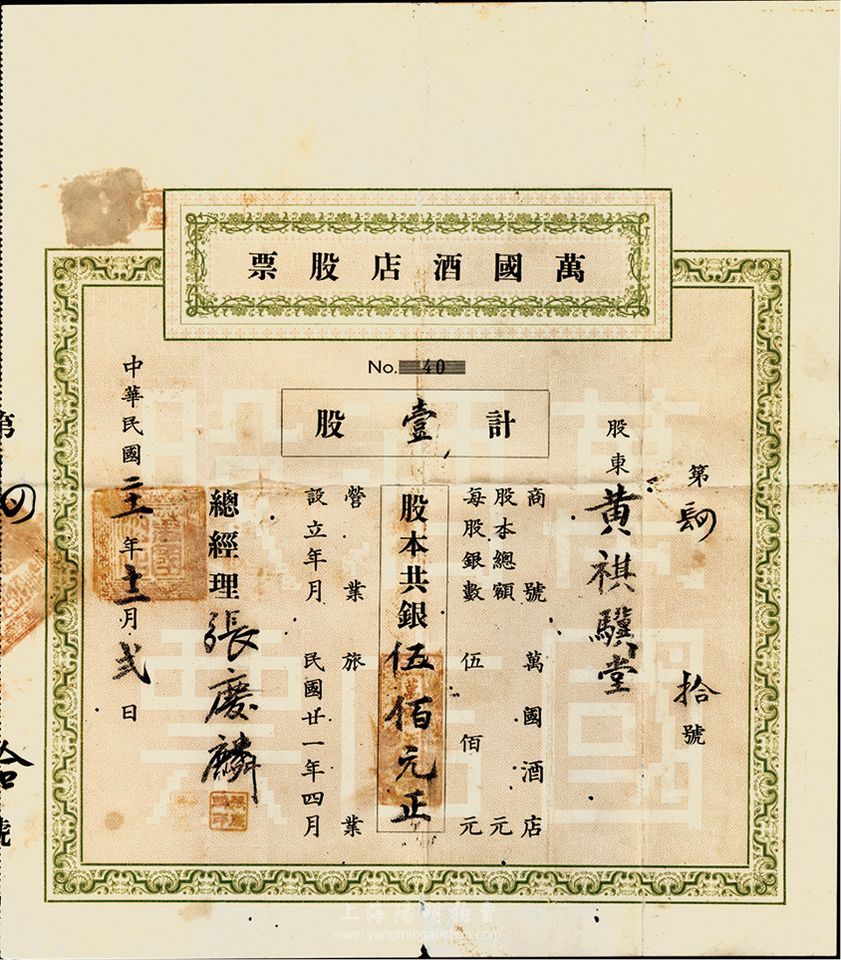 萬國酒店股票
No. 40
計壹股
第肆拾號
股東黃祺驥堂
商號萬國酒店
股本總額元
每股銀數伍佰元
股本共銀伍佰元正
營業旅業
設立年月民國廿一年四月
總經理張慶麟
中華民國二十一年十二月弍日
上海陽明拍賣
www.yangmingauction.com